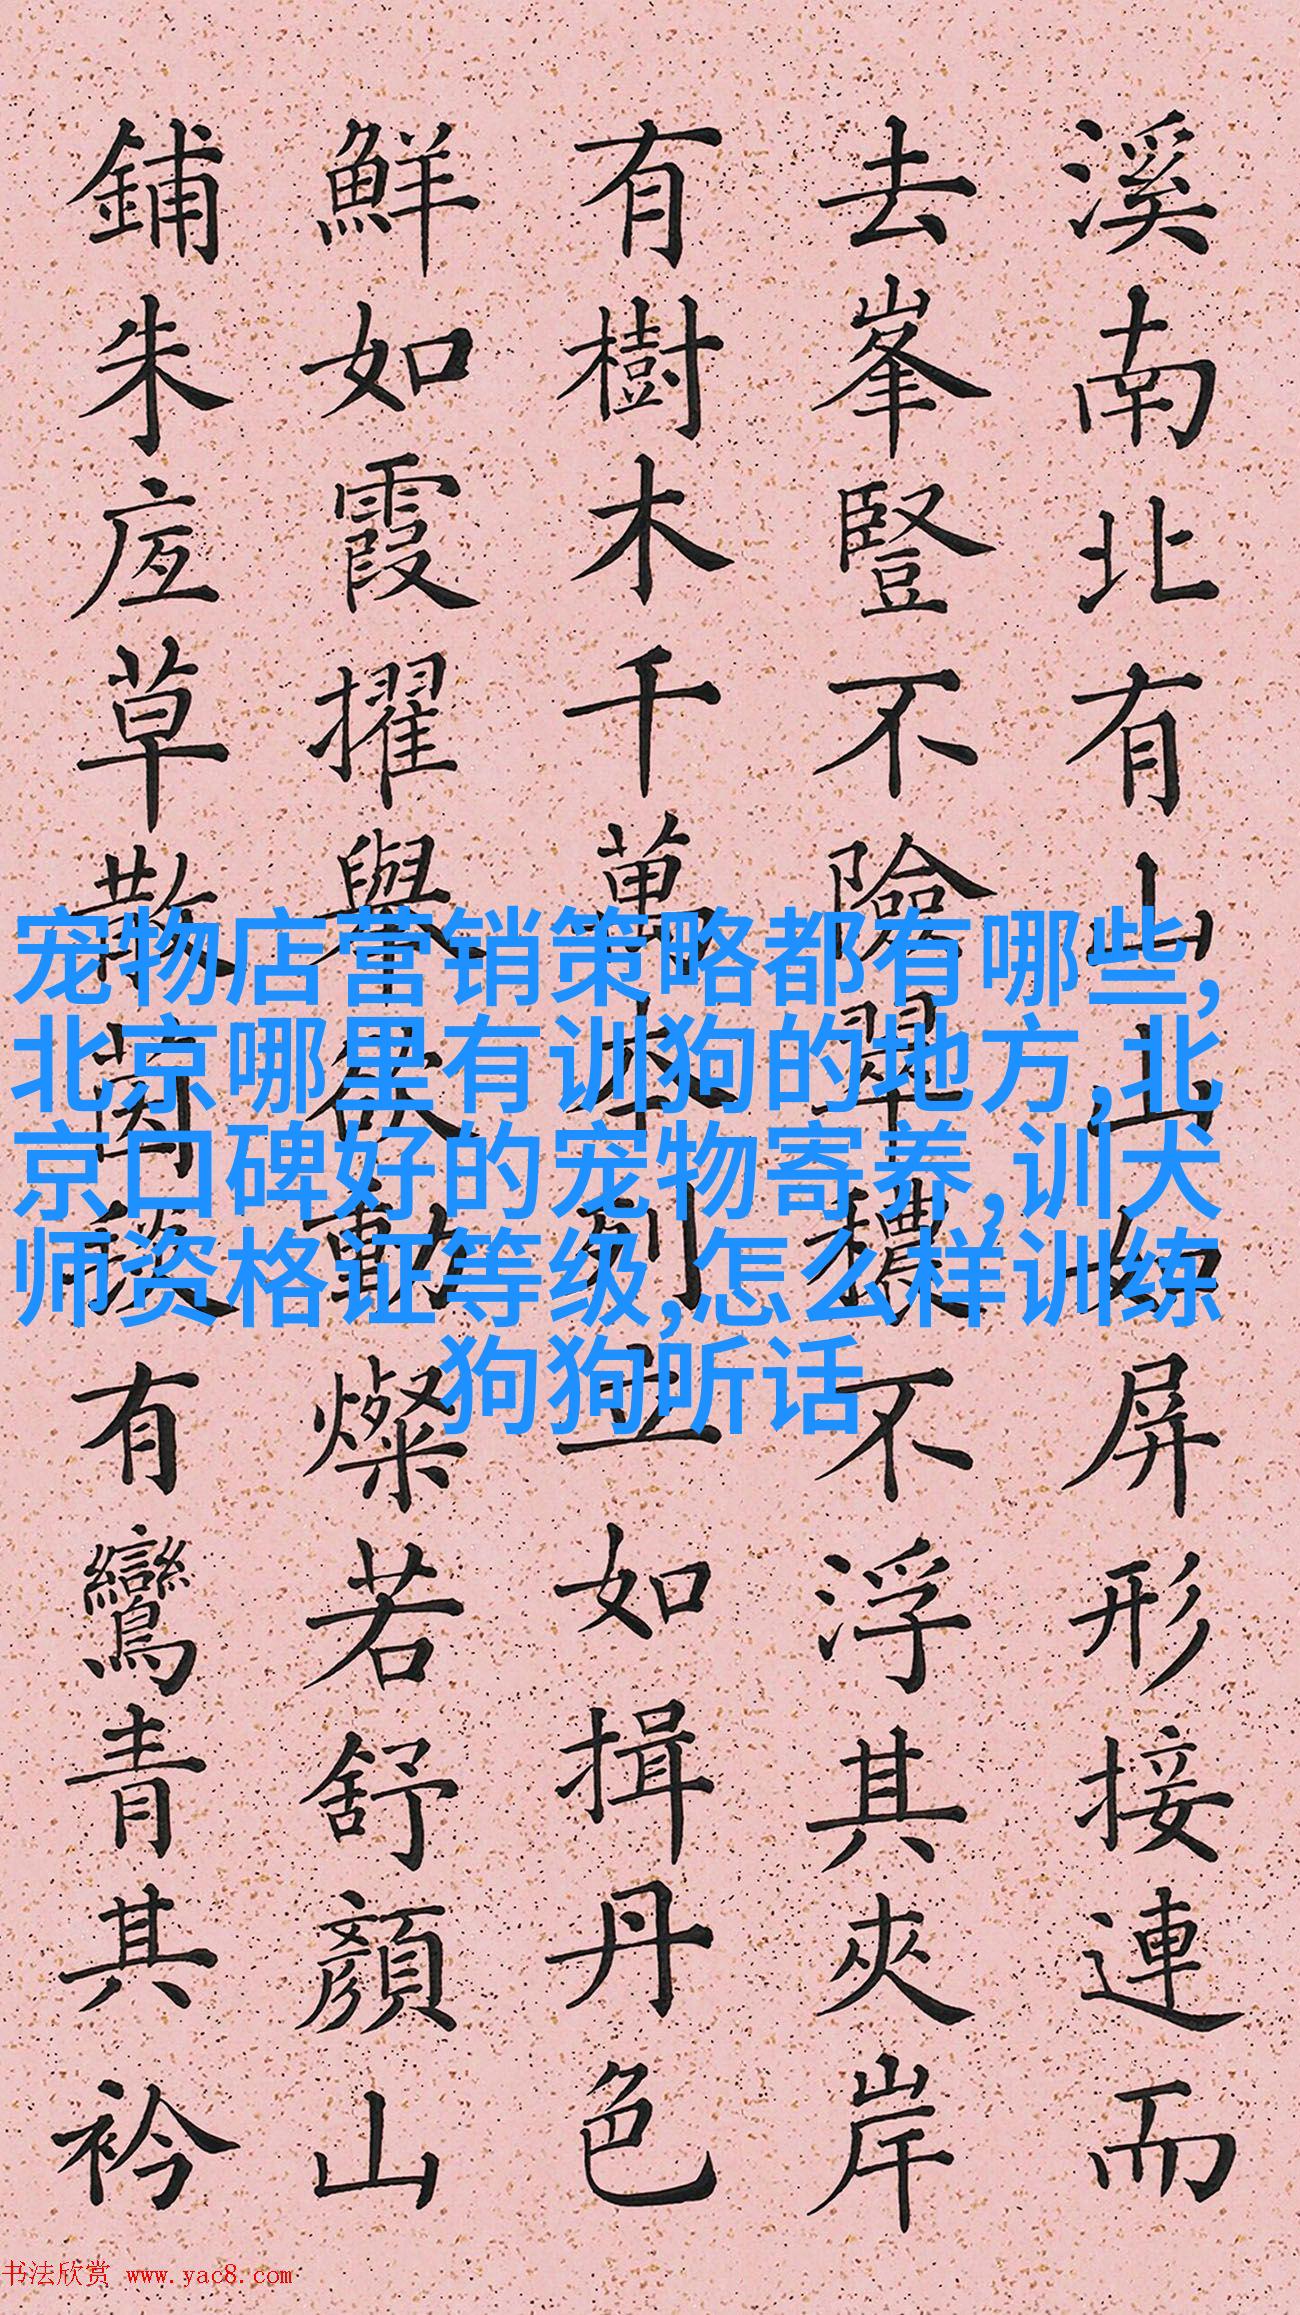 溪南北有山山如屏形接連而
去峯豎不險翠穠不浮其夾岸
有樹木千萬本列立如揖丹色
鮮如霞擢舉欲動燦若舒顏山
鋪朱底草散茵毯有鸞青其衿
宠物店营销策略都有哪些,
北京哪里有训狗的地方,北
京口碑好的宠物寄养,训犬
师资格证等级,怎么样训练
狗狗听话
书法欣赏 www.yac8.com